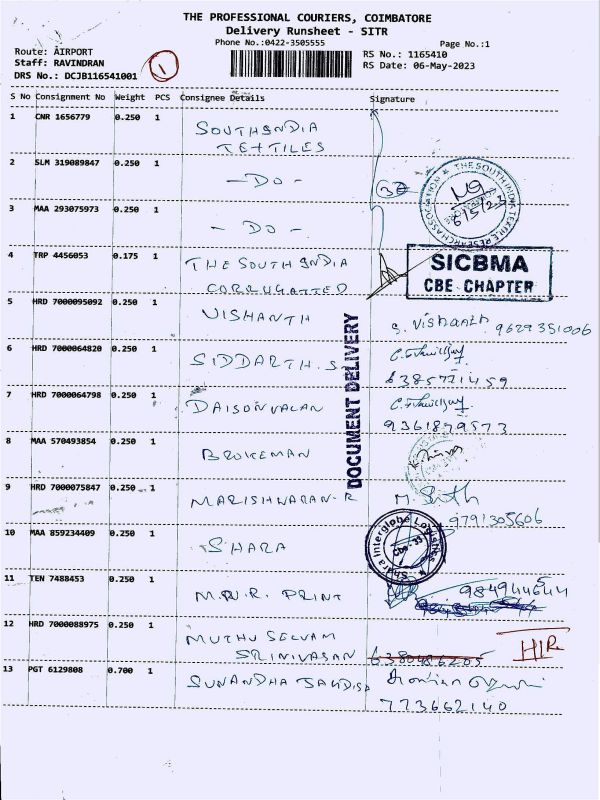 THE PROFESSIONAL COURIERS, COIMBATORE
Delivery Runsheet - SITR
Phone No.:0422-3505555
Page No.:1
Route: AIRPORT
Staff: RAVINDRAN
DRS No.: DCJB116541001
1
RS No.: 1165410
RS Date: 06-May-2023
S No Consignment No Weight PCS Consignee Details Signature
1 CNR 1656779 0.250 1
SOUTHINDIA
TEXTILES
2 SLM 319089847 0.250 1
-DO-
3 MAA 293075973 0.250 1
-DO-
THE SOUTH INDIA TEXTILE RESEARCH ASSOCIATION
6/5/23
4 TRP 4456053 0.175 1
THE SOUTH INDIA
CORRUGATTED
SICBMA
CBE CHAPTER
5 HRD 7000095092 0.250 1
VISHANTH
9629351006
DOCUMENT DELIVERY
6 HRD 7000064820 0.250 1
SIDDARTH.S
7 HRD 7000064798 0.250 1
DAISONVALAN
9361879573
8 MAA 570493854 0.250 1
BROKEMAN
9 HRD 7000075847 0.250 1
MARISHWARAN-R
9791305606
10 MAA 859234409 0.250 1
SHARA
Shara Interglobe Logistics
11 TEN 7488453 0.250 1
PRINT
12 HRD 7000088975 0.250 1
MUTHU SELVAM
SRINIVASAN
13 PGT 6129808 0.700 1
SUNANDHA
773662140